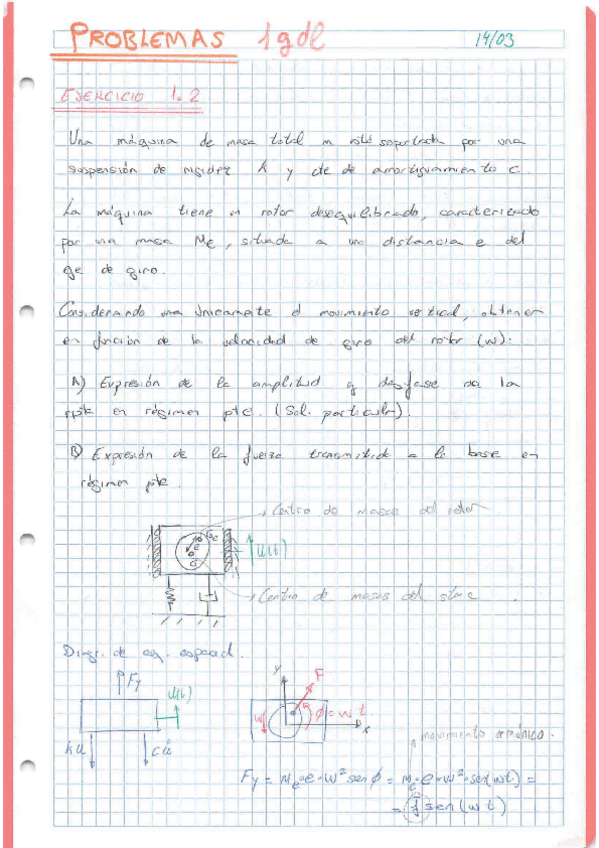 PROBLEMAS 1gdl 14/03
EJERCICIO 1.2
Una máquina de masa total m está soportada por una
suspensión de rigidez k y cte de amortiguamiento c.
La máquina tiene un rotor desequilibrado, caracterizado
por una masa Me, situada a una distancia e del
eje de giro.
Considerando una únicamente el movimiento vertical, obtener
en función de la velocidad de giro del rotor (w):
A) Expresión de la amplitud y desfase de la
rpta en régimen pte. (Sol. particular).
B) Expresión de la fuerza transmitida a la base en
régimen pte.
Centro de masas del rotor
e
G
u(t)
Centro de masas del
Diagr. de eq.
Fy
u(t)
ku
cu̇
Y
F
w
φ=wt.
x
movimiento armónico.
Fy = me·e·w² sen φ = me·e·w²·sen(wt) =
= f sen(wt)